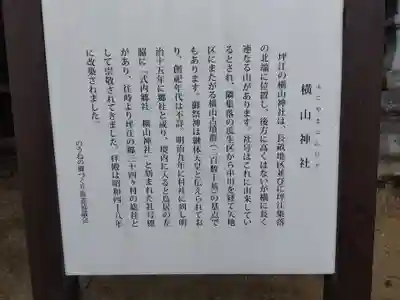 よこやまじんじゃ
横山神社
坪江の横山神社は、長畝地区並びに坪江集落
の北端に位置し、後方に高くはないが横に長く
連なる山があります。社号はこれに由来してい
るとされ、隣集落の瓜生区から中川を経て矢地
区にまたがる横山古墳群(二百数十基)の基点で
もあります。御祭神は継体天皇と伝えられてお
り、創祀年代は不詳、明治九年に村社に列し明
治十五年に郷社と成り、境内に入ると鳥居の左
脇に「式内郷社 横山神社」と刻まれた社号標
があり、往時より坪江の郷三十四ヶ村の総社と
して崇敬されてきました。拝殿は昭和四十八年
に改築されました。
のうねの郷づくり推進協議会